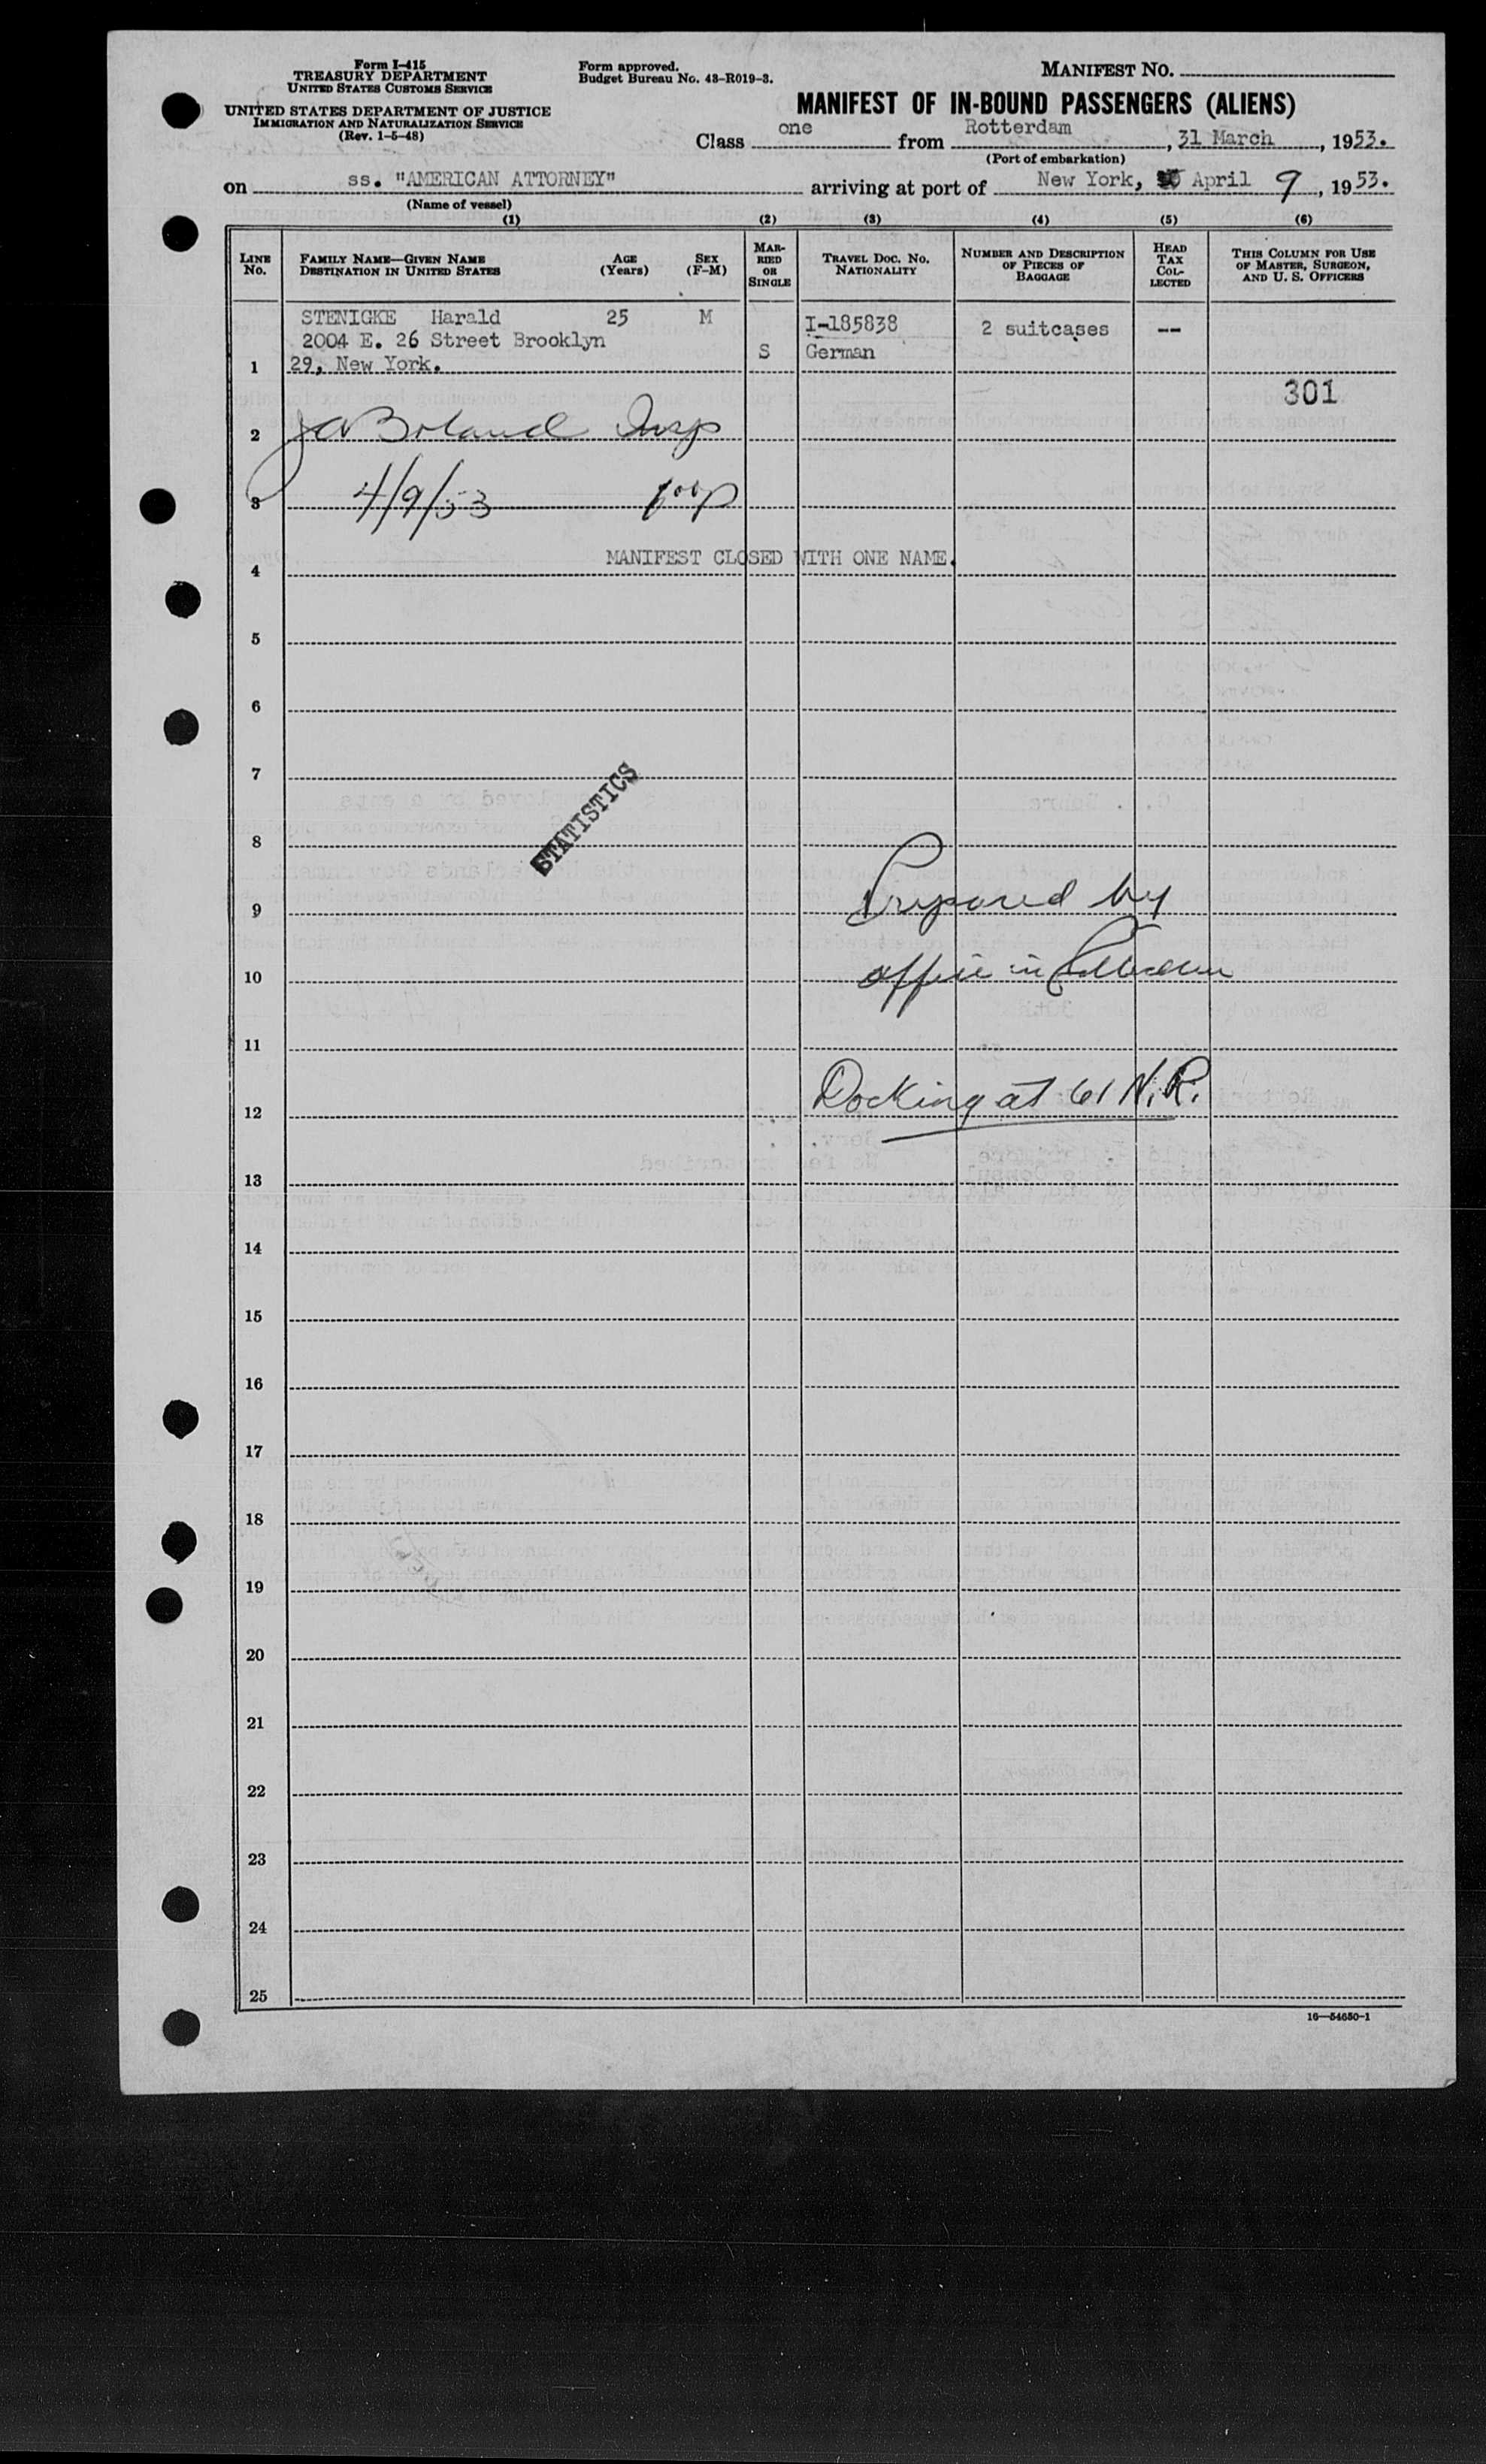 Form I-415
TREASURY DEPARTMENT
UNITED STATES CUSTOMS SERVICE
UNITED STATES DEPARTMENT OF JUSTICE
IMMIGRATION AND NATURALIZATION SERVICE
(Rev. 1-5-48)
Form approved.
Budget Bureau No. 43-R019-3.
MANIFEST NO.
MANIFEST OF IN-BOUND PASSENGERS (ALIENS)
Class one from Rotterdam, 31 March, 1953.
(Port of embarkation)
on ss. "AMERICAN ATTORNEY" arriving at port of New York, April 9, 1953.
(Name of vessel)
(1) (2) (3) (4) (5) (6)
LINE NO.
FAMILY NAME—GIVEN NAME DESTINATION IN UNITED STATES
AGE (Years)
SEX (F-M)
MARRIED OR SINGLE
TRAVEL DOC. NO. NATIONALITY
NUMBER AND DESCRIPTION OF PIECES OF BAGGAGE
HEAD TAX COLLECTED
THIS COLUMN FOR USE OF MASTER, SURGEON, AND U. S. OFFICERS
STENIGKE Harald 25 M I-185838 2 suitcases --
2004 E. 26 Street Brooklyn
1 29, New York. S German
301
2 Boland Insp
3 4/9/53
MANIFEST CLOSED WITH ONE NAME.
4
5
6
7
STATISTICS
8
9 Prepared by
10 office in
11
12 Docking at 61 N.R.
13
14
15
16
17
18
19
20
21
22
23
24
25
16—54650-1